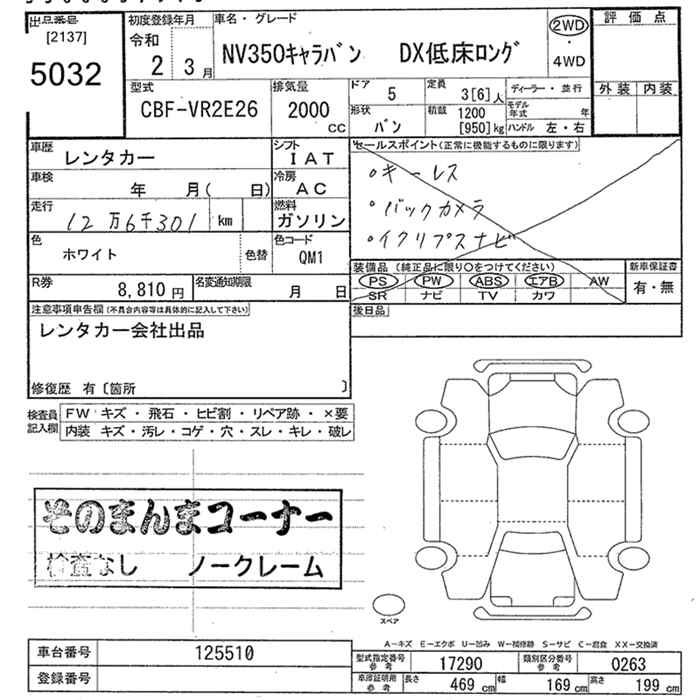 出品番号
[2137]
5032
初度登録年月
令和
2 3月
車名・グレード
NV350キャラバン DX低床ロング
2WD
・
4WD
評価点
外装 内装
型式
CBF-VR2E26
排気量
2000
cc
ドア
5
定員
3[6]人
ディーラー・並行
形状
バン
積載
1200
[950]kg
モデル年式 年
ハンドル 左・右
車歴
レンタカー
シフト
IAT
車検
年 月( 日)
冷房
AC
走行
12万6千301 km
燃料
ガソリン
色
ホワイト
色替
色コード
QM1
R券
8,810円
名変通知期限
月 日
セールスポイント(正常に機能するものに限ります)
・キーレス
・バックカメラ
・イクリプスナビ
装備品 (純正品に限り○をつけてください)
PS PW ABS エアB AW
SR ナビ TV カワ
新車保証書
有・無
後日品
注意事項申告欄(不具合内容等は具体的に記入して下さい)
レンタカー会社出品
修復歴 有〔箇所 〕
検査員記入欄
FW キズ・飛石・ヒビ割・リペア跡・×要
内装 キズ・汚レ・コゲ・穴・スレ・キレ・破レ
そのまんまコーナー
検査なし ノークレーム
スペア
A－キズ E－エクボ U－凹み W－補修跡 S－サビ C－腐食 XX－交換済
車台番号
125510
登録番号
型式指定番号 参考
17290
類別区分番号 参考
0263
車庫証明用 参考
長さ 469 cm
幅 169 cm
高さ 199 cm